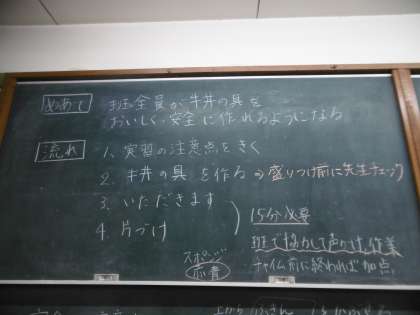 めあて 班全員が牛丼の具を
おいしく安全に作れるようになる
流れ 1、実習の注意点をきく
2、牛丼の具を作る→盛りつけ前に先生チェック
3、いただきます
4、片づけ
15分必要
班で協力して声かけ、作業
チャイム前に終われば加点
スポンジ